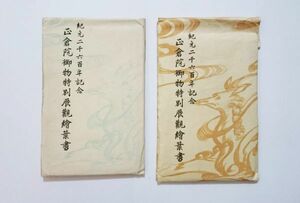 紀元二千六百年記念
正倉院御物特別展觀繪葉書
紀元二千六百年記念
正倉院御物特別展觀繪葉書